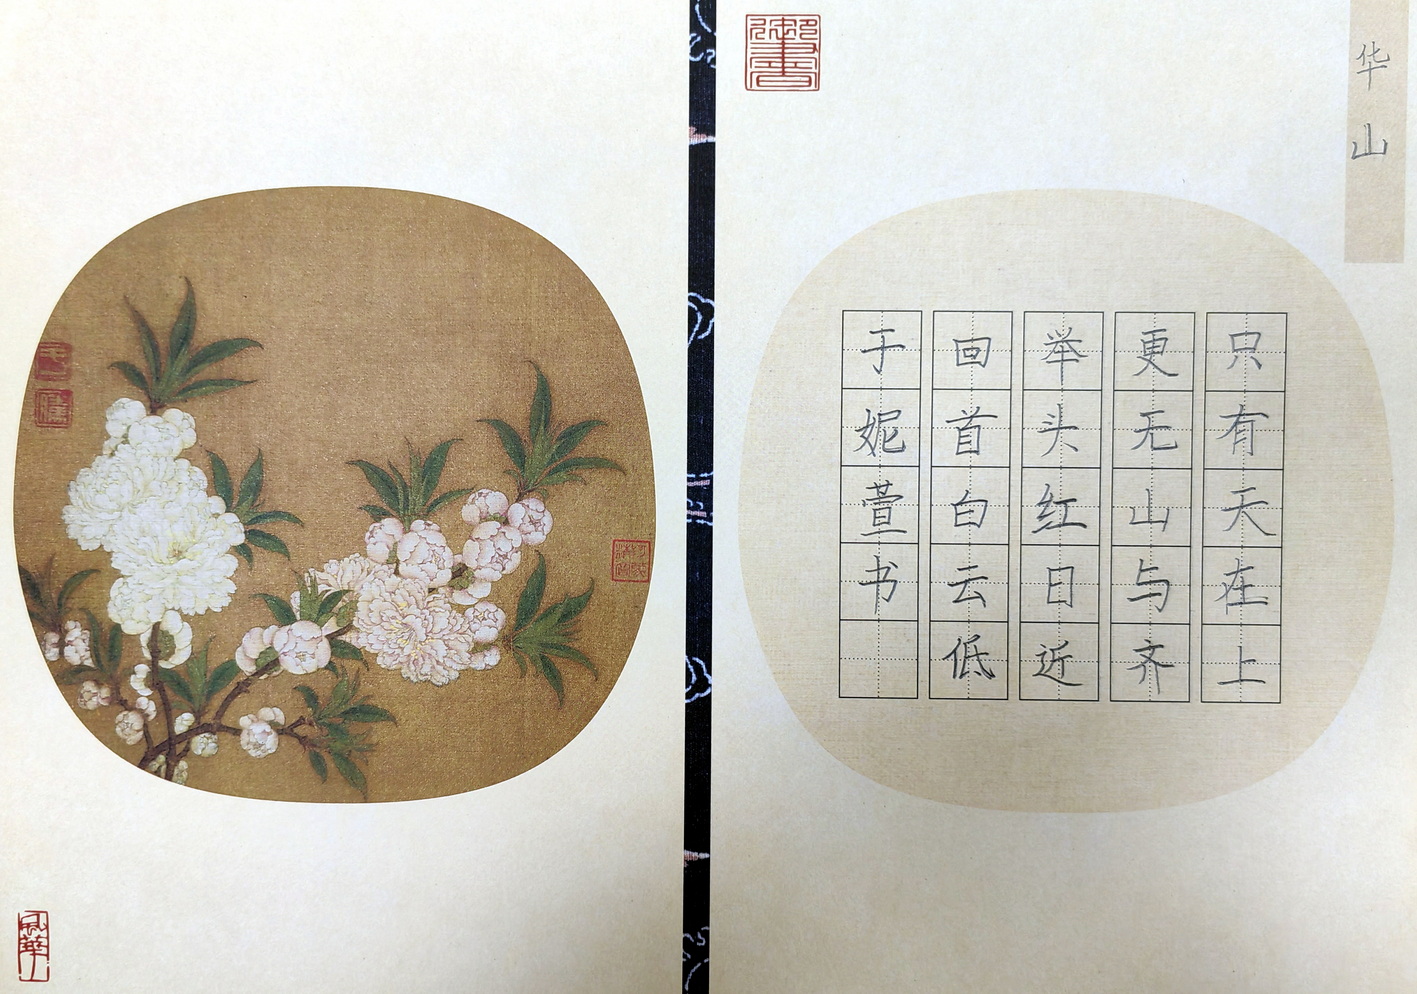 华山
只有天在上
更无山与齐
举头红日近
回首白云低
于妮萱书